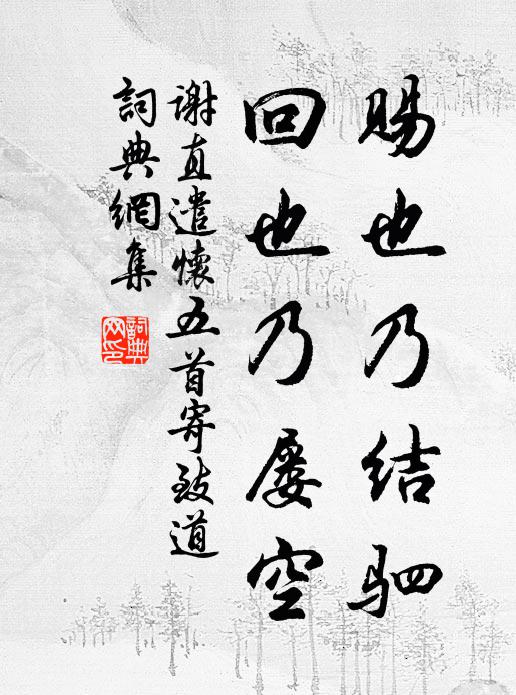 赐也乃结驷
回也乃屡空
谢直遣怀五首寄致道
詞典網集
詞典网印